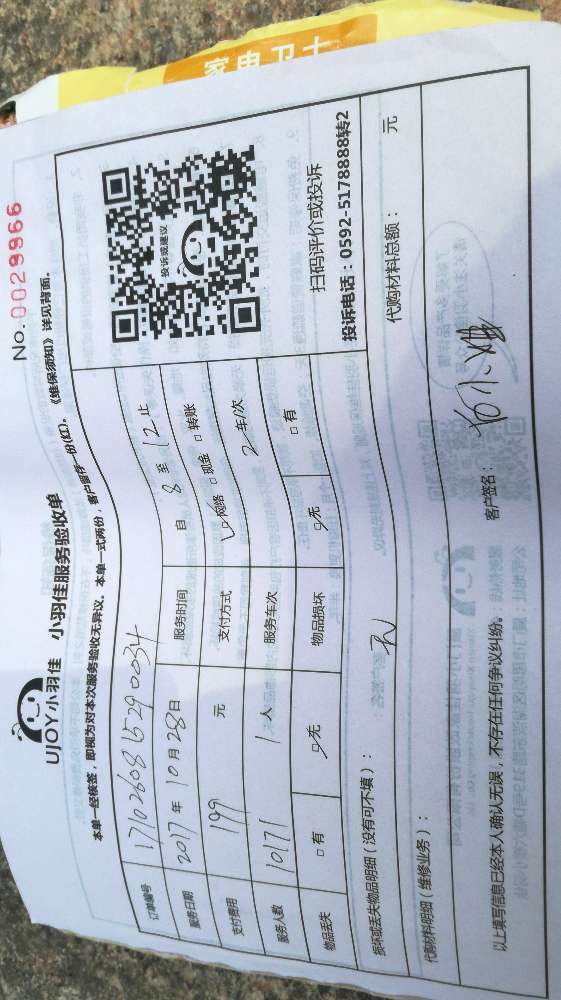 家电卫士
No.0029966
UJOY小羽佳 小羽佳服务验收单
本单一经核签，即视为对本次服务验收无异议。本单一式两份，客户留存一份(红)。《维保须知》详见背面。
订单编号 17102608152900034
服务日期 2017年10月28日 服务时间 自 8 至 12 止
支付费用 199 元 支付方式 网络 现金 转账
服务人数 10171 1人 服务车次 2车/次
物品丢失 有 无 物品损坏 无 有
投诉或建议
扫码评价或投诉
投诉电话：0592-5178888转2
损坏或丢失物品明细（没有可不填）： 无
代购材料明细（维修业务）： 代购材料总额： 元
以上填写信息已经本人确认无误，不存在任何争议纠纷。 客户签名：